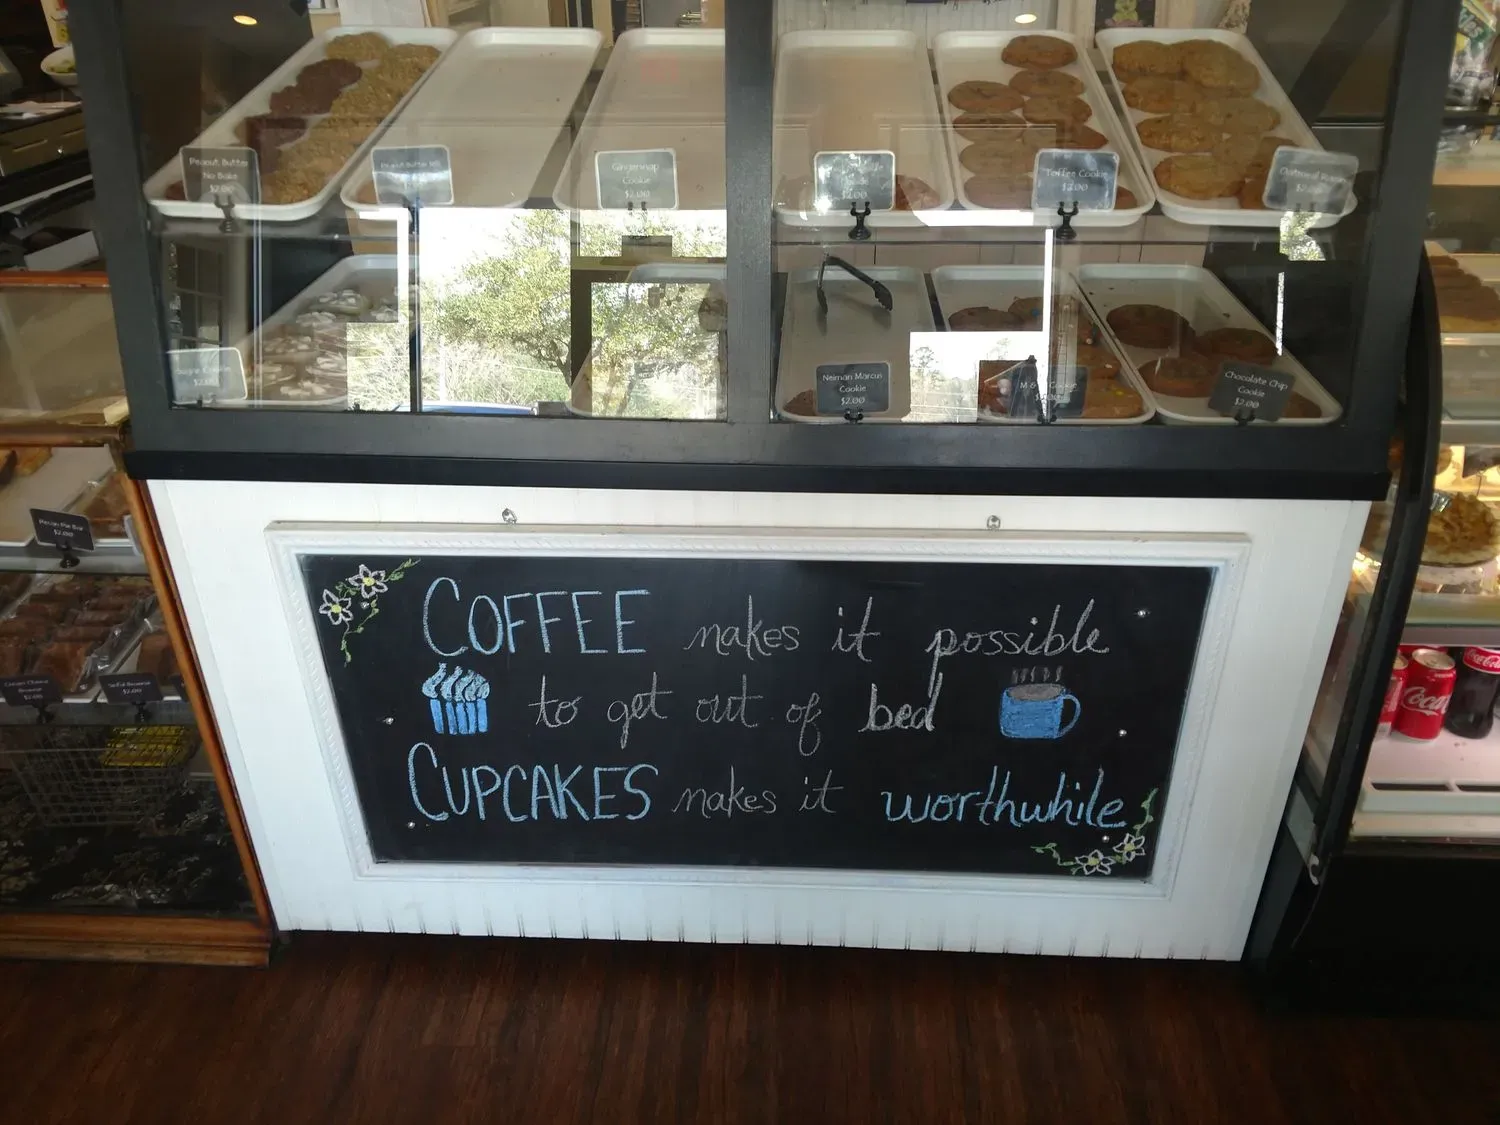 Peanut Butter
No Bake
$2.00
Peanut Butter
Gingersnap
Cookie
$2.00
$2.00
Toffee Cookie
$2.00
Oatmeal Raisin
Sugar Cookie
$2.00
Neiman Marcus
Cookie
$2.00
M & M Cookie
Chocolate Chip
Cookie
$2.00
Pecan Pie Bar
$2.00
Cream Cheese
Brownie
$2.00
Brownie
$2.00
COFFEE makes it possible
to get out of bed
CUPCAKES makes it worthwhile
Coca-Cola